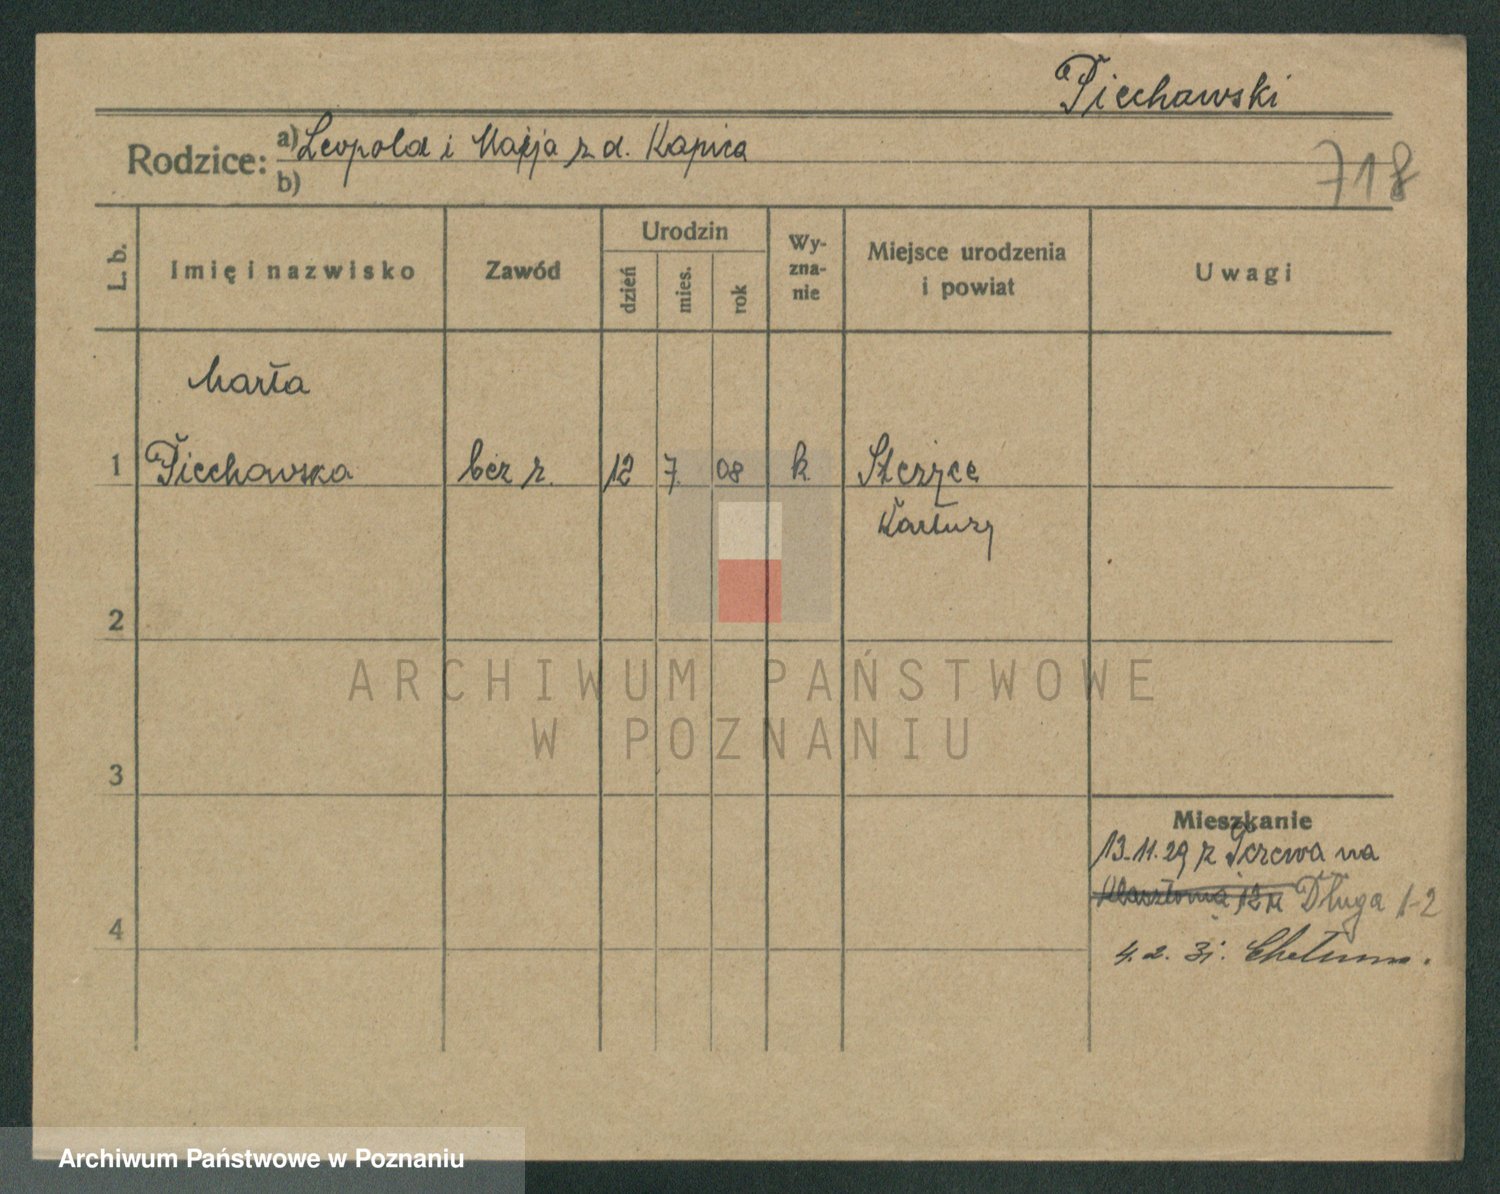 Piechawski
Rodzice: a) Leopold i Marja z d. Kapica
b)
718
L. b.
Imię i nazwisko
Zawód
Urodzin
dzień
mies.
rok
Wy-
zna-
nie
Miejsce urodzenia
i powiat
Uwagi
Marta
1 Piechowska bez z. 12 7. 08 k. Stężyce
Kartuzy
2
3
4
Mieszkanie
13.11.29 z Tczewa na
Klasztorna 12 Długa 1-2
4. 2. 31. Chełmno.
ARCHIWUM PAŃSTWOWE
W POZNANIU
Archiwum Państwowe w Poznaniu